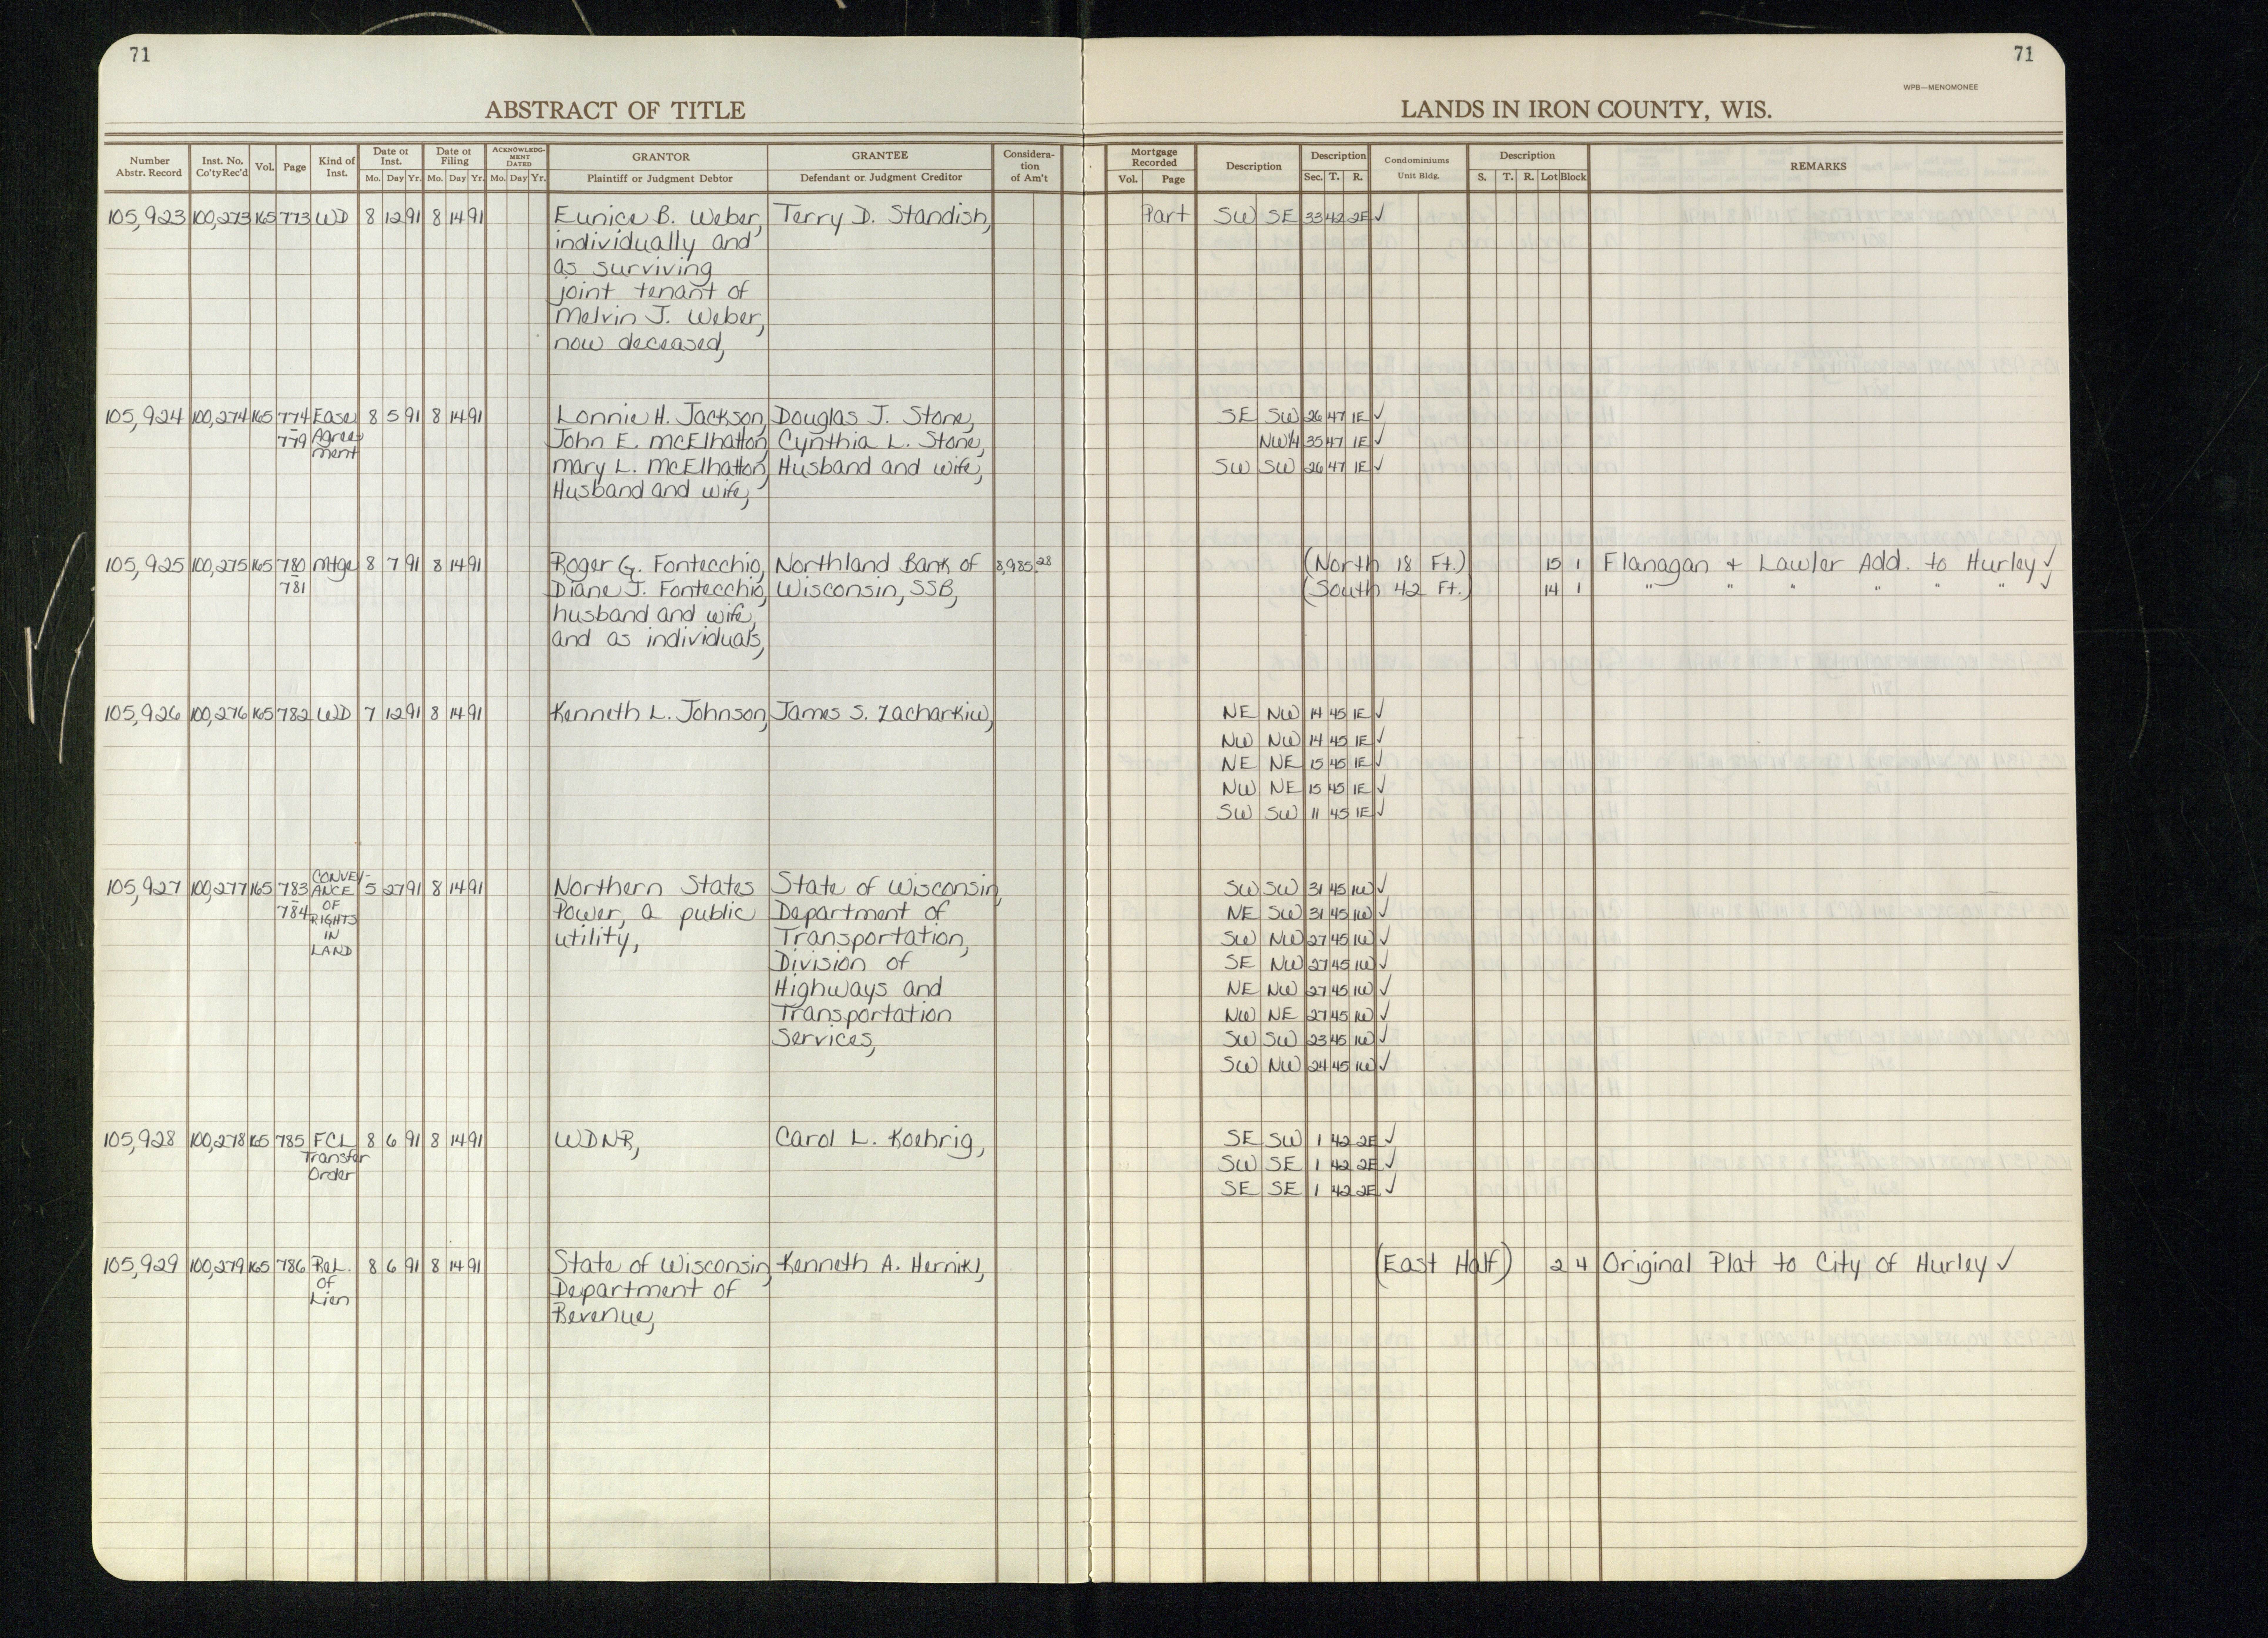 71
71
WPB—MENOMONEE
ABSTRACT OF TITLE
LANDS IN IRON COUNTY, WIS.
Number Abstr. Record Inst. No. Co'ty Rec'd Vol. Page Kind of Inst. Date of Inst. Mo. Day Yr. Date of Filing Mo. Day Yr. ACKNOWLEDGMENT DATED Mo. Day Yr. GRANTOR Plaintiff or Judgment Debtor GRANTEE Defendant or Judgment Creditor Consideration of Am't Mortgage Recorded Vol. Page Description Description Sec. T. R. Condominiums Unit Bldg. Description S. T. R. Lot Block REMARKS
105,923 100,273 165 773 WD 8 12 91 8 14 91 Eunice B. Weber, Terry D. Standish, Part SW SE 33 42 2E ✓
individually and
as surviving
joint tenant of
Melvin J. Weber,
now deceased,
105,924 100,274 165 774 Ease 8 5 91 8 14 91 Lonnie H. Jackson, Douglas J. Stone, SE SW 26 47 1E ✓
- 779 Agree- John E. McElhatton, Cynthia L. Stone, NW¼ 35 47 1E ✓
ment Mary L. McElhatton, Husband and wife, SW SW 26 47 1E ✓
Husband and wife,
105,925 100,275 165 780 Mtge 8 7 91 8 14 91 Roger G. Fontecchio, Northland Bank of 8,985.28 (North 18 Ft.) 15 1 Flanagan + Lawler Add. to Hurley ✓
- 781 Diane J. Fontecchio, Wisconsin, SSB, (South 42 Ft.) 14 1 " " " " " " ✓
husband and wife,
and as individuals,
105,926 100,276 165 782 WD 7 12 91 8 14 91 Kenneth L. Johnson, James S. Zacharkiw, NE NW 14 45 1E ✓
NW NW 14 45 1E ✓
NE NE 15 45 1E ✓
NW NE 15 45 1E ✓
SW SW 11 45 1E ✓
105,927 100,277 165 783 CONVEY- 5 27 91 8 14 91 Northern States State of Wisconsin, SW SW 31 45 1W ✓
- 784 ANCE OF Power, a public Department of NE SW 31 45 1W ✓
RIGHTS IN utility, Transportation, SW NW 27 45 1W ✓
LAND Division of SE NW 27 45 1W ✓
Highways and NE NW 27 45 1W ✓
Transportation NW NE 27 45 1W ✓
Services, SW SW 23 45 1W ✓
SW NW 24 45 1W ✓
105,928 100,278 165 785 FCL 8 6 91 8 14 91 WDNR, Carol L. Koehrig, SE SW 1 42 2E ✓
Transfer SW SE 1 42 2E ✓
Order SE SE 1 42 2E ✓
105,929 100,279 165 786 Rel. 8 6 91 8 14 91 State of Wisconsin, Kenneth A. Hernikl, (East Half) 2 4 Original Plat to City of Hurley ✓
of Department of
Lien Revenue,